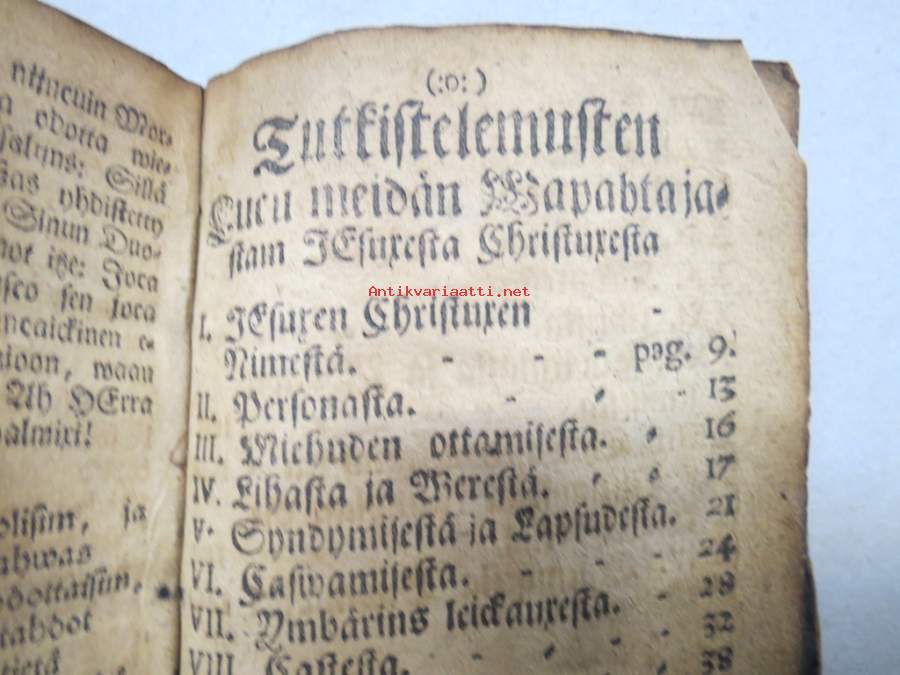 nijncuin Mor-
a odotta wie-
salijns: Sillä
sas yhdistetty
Sinun Duo-
not itze: Joca
sco sen joca
ncaickinen e-
sioon, waan
Ah HErra
almixi!
olisim, ja
ahwas
odottaisim,
tahdot
tietä
(:o:)
Tutkistelemusten
Lucu meidän Wapahtaja-
stam JEsuxesta Christuxesta
Antikvariaatti.net
I. JEsuxen Christuxen -
Nimestä. - - - pag. 9.
II. Personasta. - - - 13
III. Miehuden ottamisesta. - 16
IV. Lihasta ja Werestä. - - 17
V. Syndymisestä ja Lapsudesta. 21
VI. Caswamisesta. - - - 24
VII. Ymbärins leickauxesta. - 28
VIII. Castesta. - - - 32
38